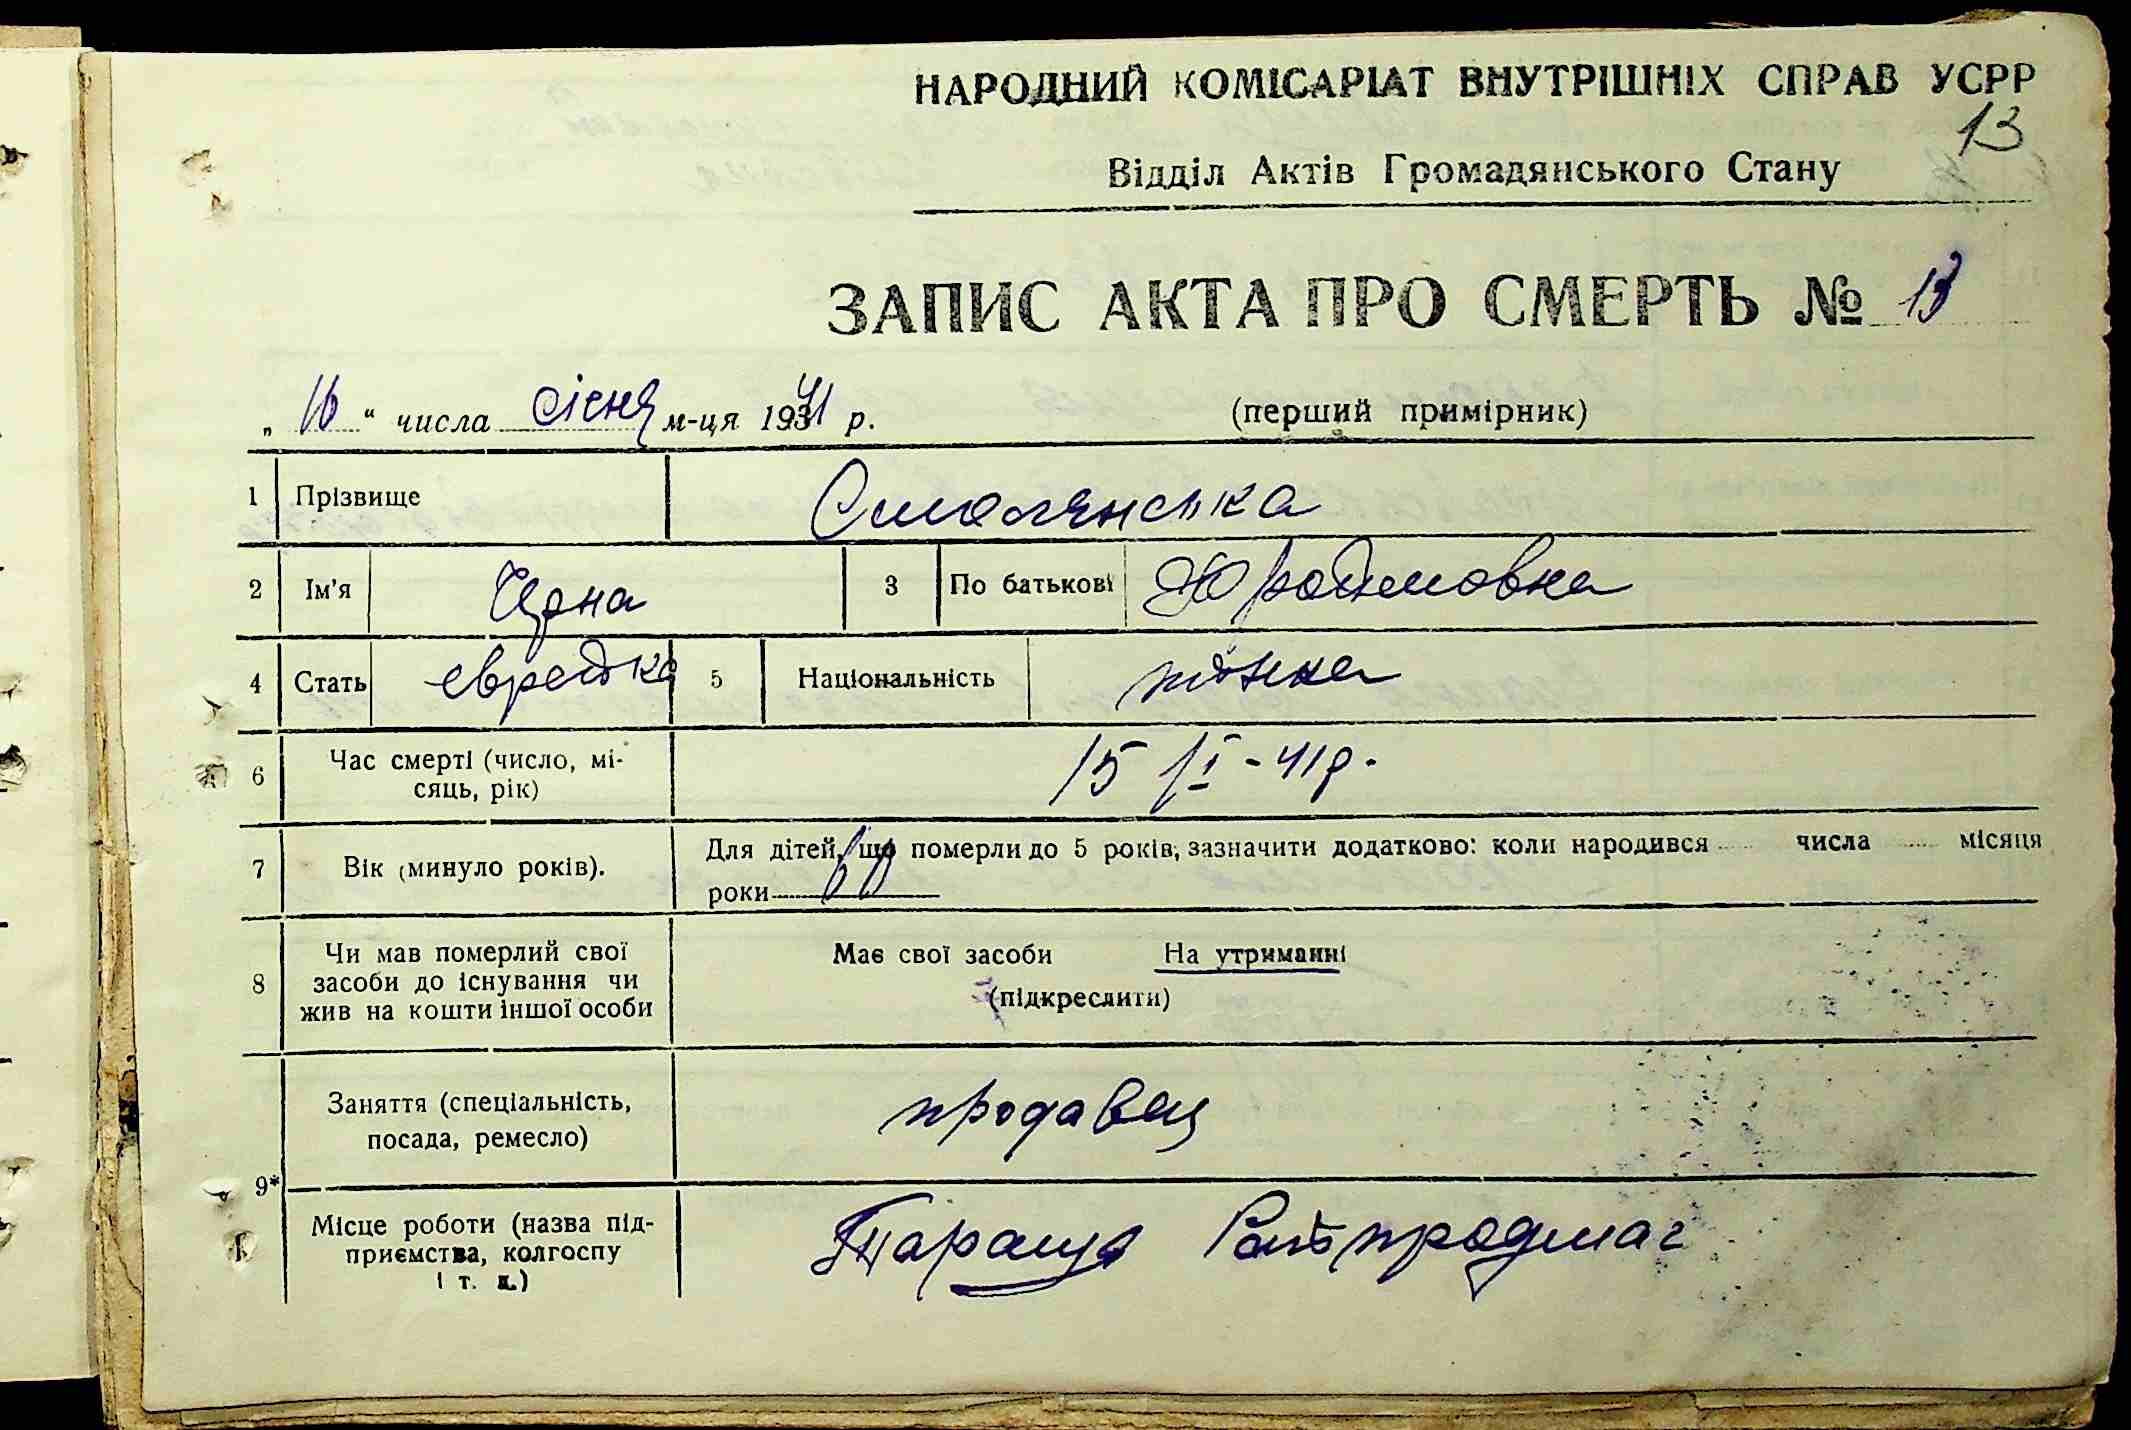 НАРОДНИЙ КОМІСАРІАТ ВНУТРІШНІХ СПРАВ УСРР
13
Відділ Актів Громадянського Стану
ЗАПИС АКТА ПРО СМЕРТЬ № 13
„ 16 “ числа січня м-ця 1941 р. (перший примірник)
1 Прізвище Смолянська
2 Ім'я 3 По батькові
4 Стать еврейка 5 Національність жінка
6 Час смерті (число, мі-
сяць, рік) 15/I-41р.
7 Вік (минуло років). Для дітей, що померли до 5 років, зазначити додатково: коли народився числа місяця
роки 60
8 Чи мав померлий свої
засоби до існування чи
жив на кошти іншої особи
Має свої засоби На утриманні
(підкреслити)
9* Заняття (спеціальність,
посада, ремесло) продавец
Місце роботи (назва під-
приємства, колгоспу
і т. д.) Тараща Райпродмаг